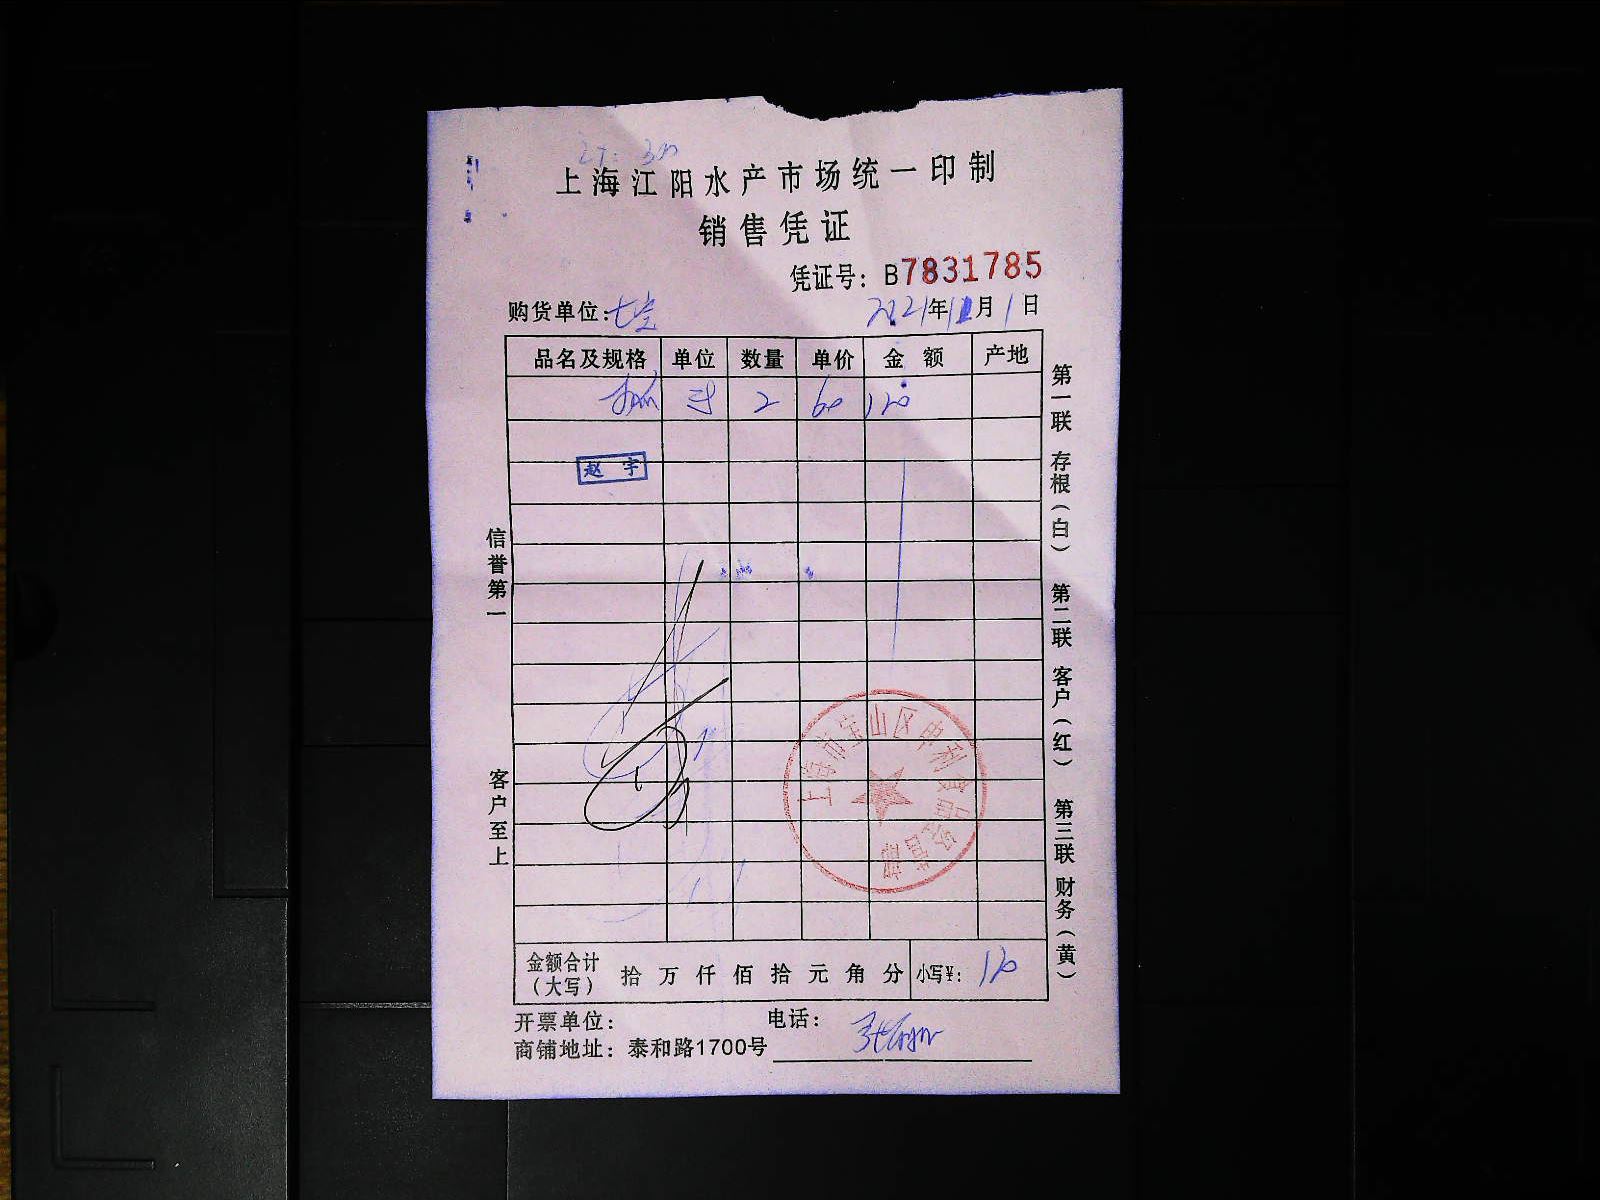 上海江阳水产市场统一印制
销售凭证
凭证号：B7831785
购货单位：七宝 2021年11月1日
品名及规格 单位 数量 单价 金额 产地
2 60 120
赵宇
信誉第一
客户至上
第一联 存根（白） 第二联 客户（红） 第三联 财务（黄）
上海市宝山区申利食品经营部
金额合计（大写） 拾万仟佰拾元角分 小写¥：120
开票单位： 电话：
商铺地址：泰和路1700号